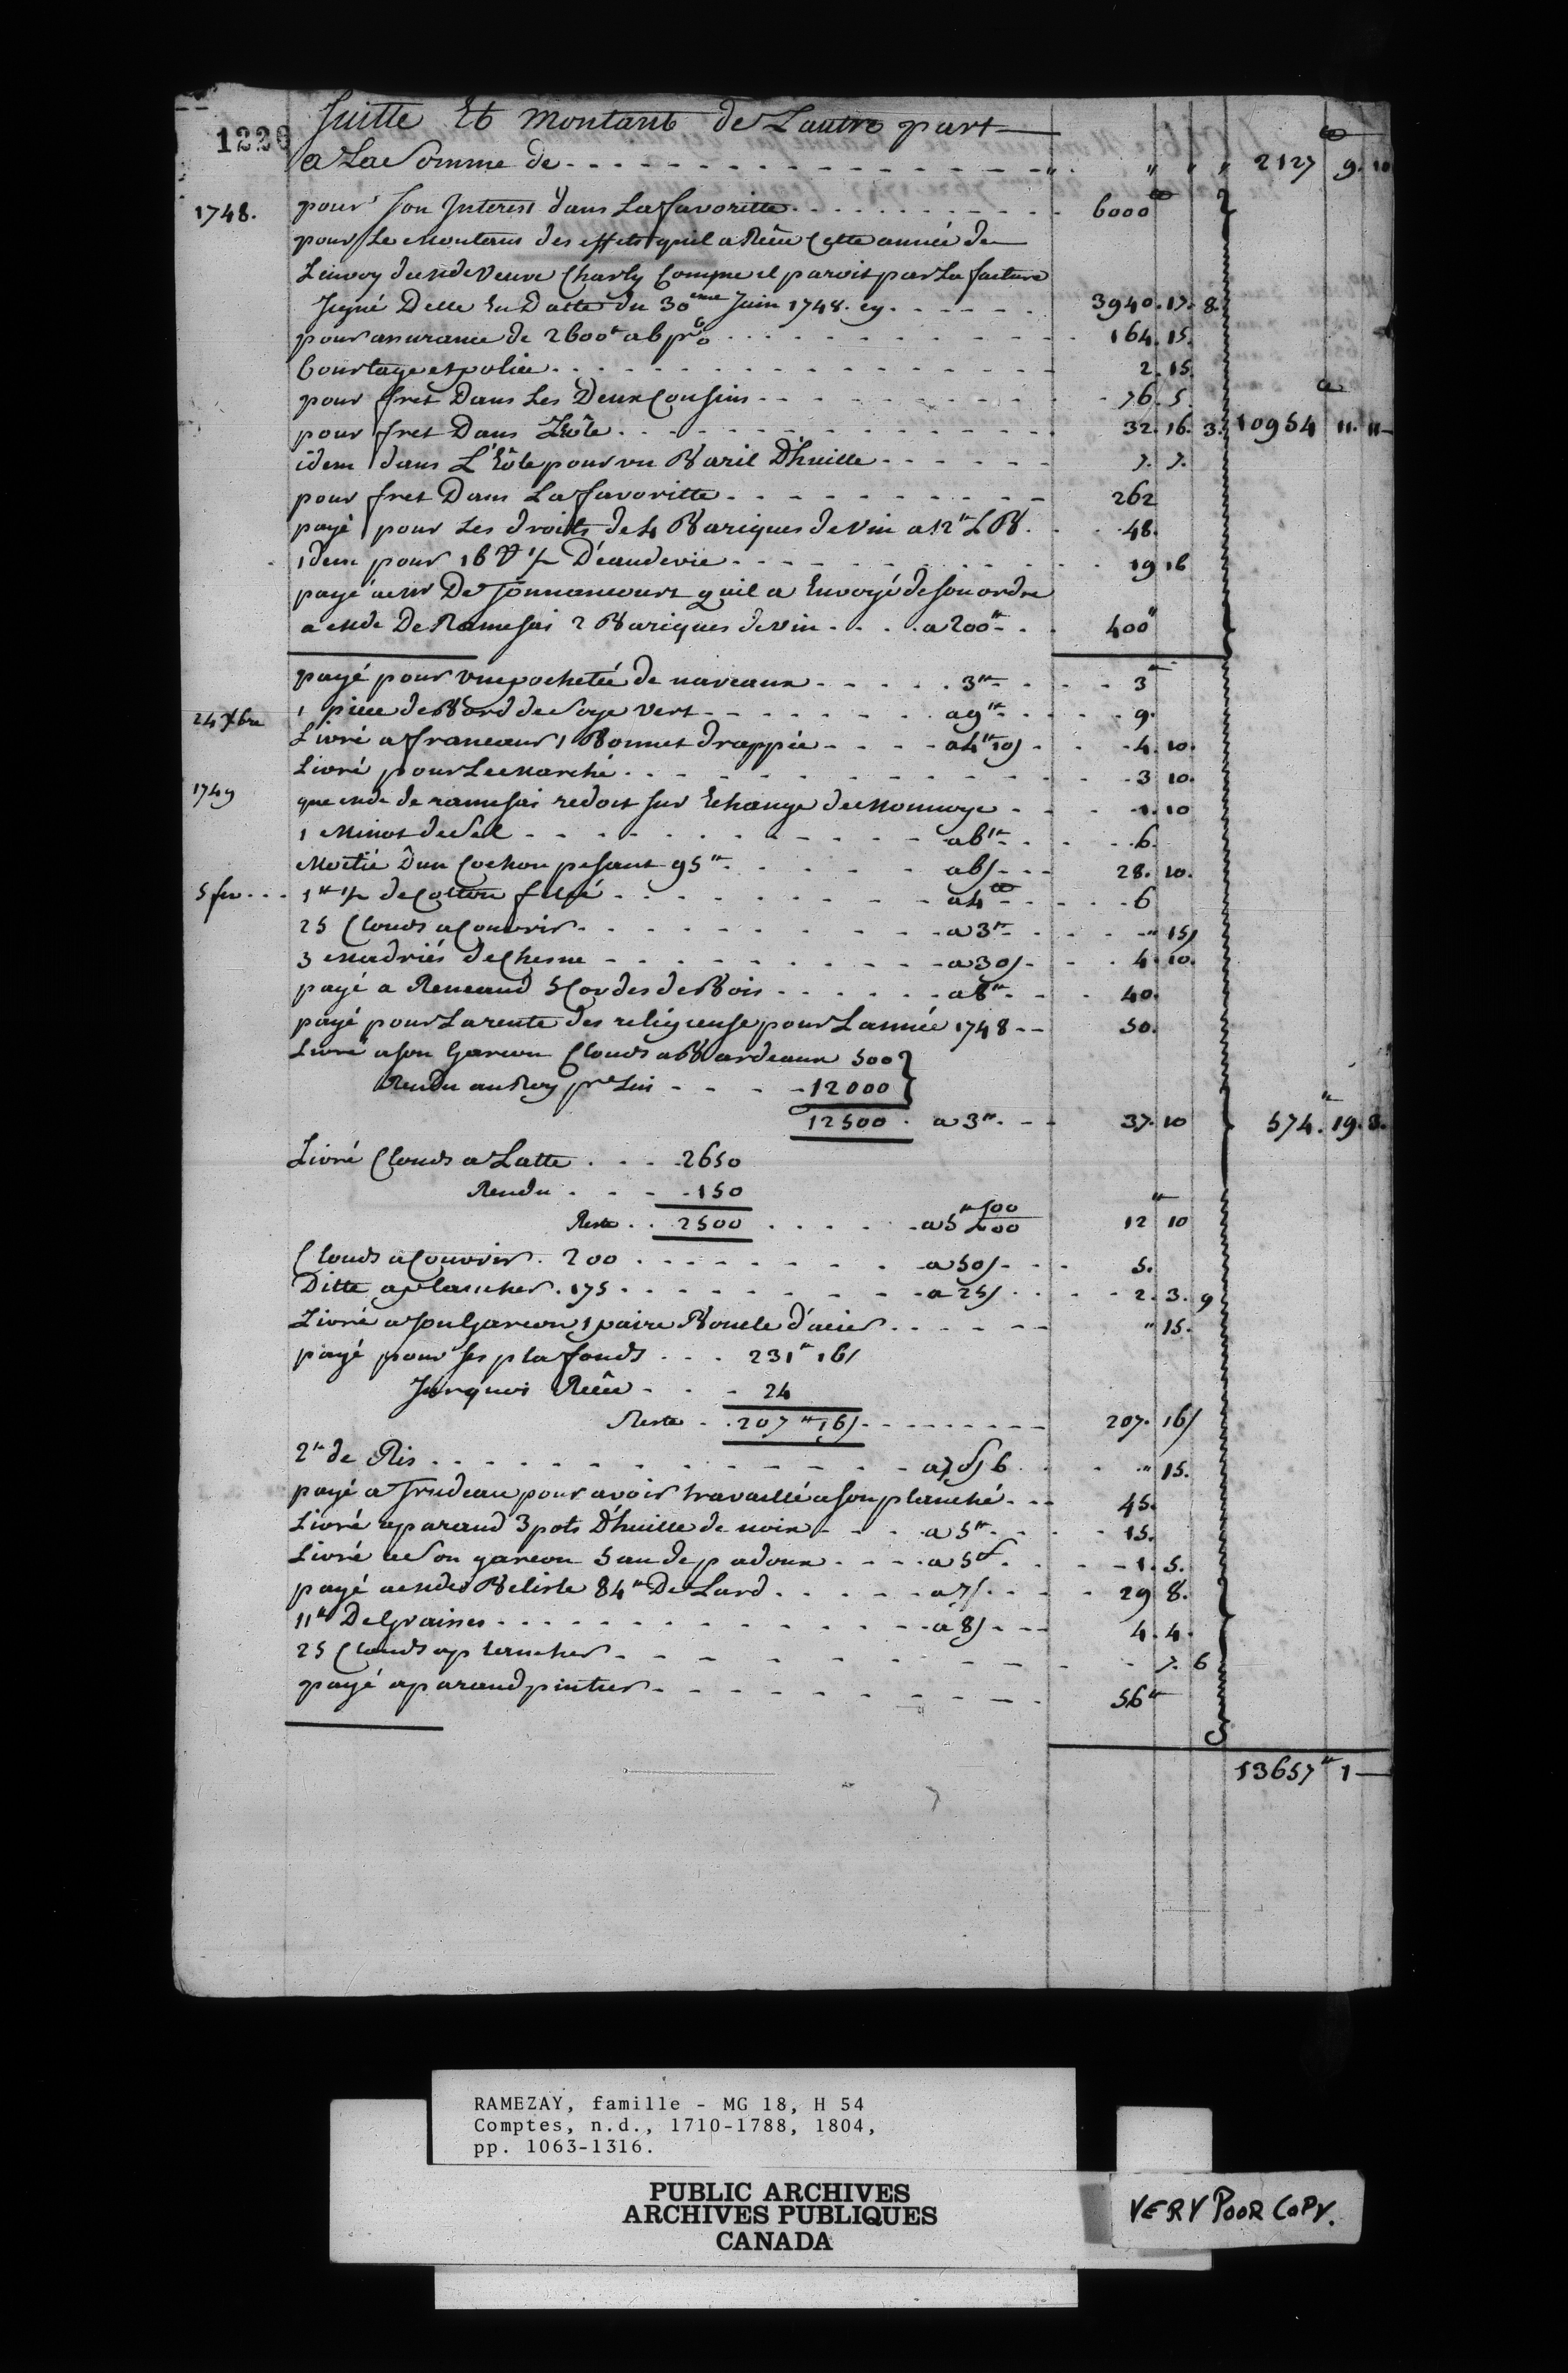 1220
Suitte Et montant de Lautre part
a La Somme de - - - " " " 2127 9. 10
1748. pour son Interest dans La favoritte - - - 6000
pour Le montant des effets quil a Reçu Cette année de
Lenvoy de mde Veuve Charly Comme il paroit par La facture
Signé Delle En Datte du 30eme Juin 1748. cy - - - 3940. 17. 8.
pour assurance de 2600tt a 6 pr% - - - 164. 15.
Courtage et police - - - 2. 15.
pour fret Dans Les Deux Cousins - - - 76. 5.
pour fret Dans - - - 32. 16. 3. 10954 11. 11
idem dans pour un Baril D'huille - - - 7. 7.
pour fret Dans La favoritte - - - 262
payé pour Les droits de 4 Bariques de vin a 12tt L B. - - 48.
idem pour 16 V 1/2 D'eaudevie - - - 19 16
payé a mr De Tonnancourt quil a Envoyé de son ordre
a mde De Ramesai 2 Bariques de vin - - - a 200tt - - 400"
payé pour une pochetée de naveaux - - - 3tt - - - 3tt
24 Xbre 1 piece de Bord de Soye vert - - - a 9tt - - - 9.
Livré a francœur 1 Bonnet drappée - - - a 4tt 10s - - 4. 10.
Livré pour Le marché - - - 3 10.
1749 que mde de ramesai redoit sur Echange de monnoye - - - 1. 10
1 minot de Sel - - - a 6tt - - - 6.
moitié D'un Cochon pesant 95tt - - - a 6s - - - 28. 10.
5 fev - - 1tt 1/2 de Cotton fillé - - - a 4tt - - - 6
25 Clouds a Couvrir - - - a 3tt - - - " 15s
3 madriés de Chesne - - - a 30s - - 4. 10.
payé a Reneaud 5 Cordes de Bois - - - a 8tt - - 40.
payé pour La rente des religieuse pour Lannée 1748 - - 50.
Livré a son Garçon Clouds a Bardeaux 500
Rendu au Roy pr Lui - - - 12000
12500 . a 3tt - - 37. 10 574. 19. 3.
Livré Clouds a Latte - - - 2650
Rendu - - - 150
Reste . . 2500 - - - a 5tt 12 10
Clouds a Couvrir. 200 - - - a 50s - - - 5.
Ditte a plancher. 175 - - - a 25s - - - 2. 3. 9
Livré a son Garçon 1 paire Boucle d'acier - - - " 15.
payé pour ses plafonds - - - 231tt 16s
Reçu - - - 24
Reste - - 207tt 16s - - - 207. 16s
2tt de Ris - - - a 7s 6 - - " 15.
payé a Trudeau pour avoir travaillé a son planché - - 45.
Livré a parand 3 pots D'huille de noix - - - a 5tt - - 15.
Livré a Son garçon 5 au de padoux - - - a 5s - - 1. 5.
payé a mde Belisle 84tt De Lard - - - a 7s - - 29 8.
11tt De Graisses - - - a 8s - - 4. 4.
25 Clouds a plancher - - - 7. 6
payé a parand pintier - - - 56tt
13657tt 1
RAMEZAY, famille - MG 18, H 54
Comptes, n.d., 1710-1788, 1804,
pp. 1063-1316.
PUBLIC ARCHIVES
ARCHIVES PUBLIQUES
CANADA
VERY POOR COPY.